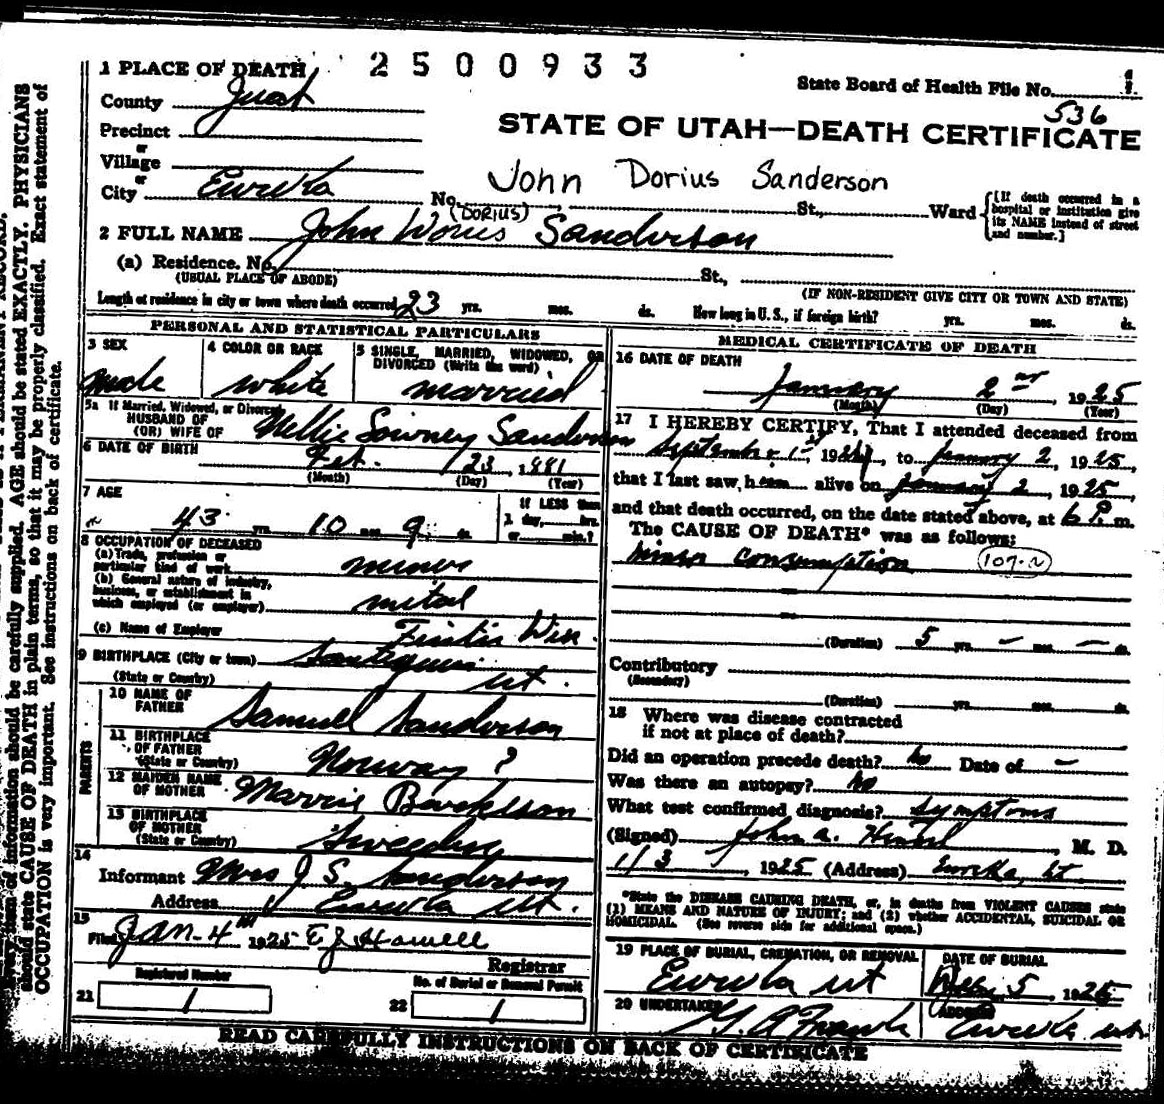 2500933
1 PLACE OF DEATH
State Board of Health File No.
County Juab
536
STATE OF UTAH—DEATH CERTIFICATE
Precinct
or
Village
or
City Eureka No. St., Ward
[If death occurred in a hospital or institution give its NAME instead of street and number.]
John Dorius Sanderson
(DORIUS)
2 FULL NAME John Sanderson
(a) Residence. No. St.,
(USUAL PLACE OF ABODE)
(IF NON-RESIDENT GIVE CITY OR TOWN AND STATE)
Length of residence in city or town where death occurred 23 yrs. mos. ds. How long in U. S., if foreign birth? yrs. mos. ds.
PERSONAL AND STATISTICAL PARTICULARS
3 SEX
male
4 COLOR OR RACE
white
5 SINGLE, MARRIED, WIDOWED, OR
DIVORCED (Write the word)
married
5a If Married, Widowed, or Divorced
HUSBAND OF
(OR) WIFE OF Nellie Sanderson
6 DATE OF BIRTH
Feb. 23, 1881
(Month) (Day) (Year)
7 AGE
43 yrs. 10 mos. 9 ds.
If LESS than
1 day, hrs.
or min.?
8 OCCUPATION OF DECEASED
(a) Trade, profession or
particular kind of work miner
(b) General nature of industry,
business, or establishment in
which employed (or employer) metal
(c) Name of Employer
9 BIRTHPLACE (City or town) Santaquin
(State or Country) ut.
PARENTS
10 NAME OF
FATHER Samuel Sanderson
11 BIRTHPLACE
OF FATHER
(State or Country) Norway ?
12 MAIDEN NAME
OF MOTHER
13 BIRTHPLACE
OF MOTHER
(State or Country) Sweden
14
Informant Mrs J S. Sanderson
Address Eureka ut.
15
Filed Jan. 4th 1925 E J Howell
Registrar
Registered Number
21 1
No. of Burial or Removal Permit
22 1
MEDICAL CERTIFICATE OF DEATH
16 DATE OF DEATH
January 2nd, 1925
(Month) (Day) (Year)
17 I HEREBY CERTIFY, That I attended deceased from
September 1st, to January 2, 1925,
that I last saw him alive on January 2, 1925,
and that death occurred, on the date stated above, at 6 P. m.
The CAUSE OF DEATH* was as follows:
miners consumption
(Duration) 5 yrs. — mos. — ds.
Contributory
(Secondary)
(Duration) yrs. mos. ds.
18 Where was disease contracted
if not at place of death?
Did an operation precede death? no Date of —
Was there an autopsy? no
What test confirmed diagnosis? symptoms
(Signed) John A. , M. D.
1/3, 1925 (Address) Eureka, ut.
*State the DISEASE CAUSING DEATH, or, in deaths from VIOLENT CAUSES state
(1) MEANS AND NATURE OF INJURY; and (2) whether ACCIDENTAL, SUICIDAL OR
HOMICIDAL. (See reverse side for additional space.)
19 PLACE OF BURIAL, CREMATION, OR REMOVAL
Eureka ut
DATE OF BURIAL
5, 1925
20 UNDERTAKER
ADDRESS
Eureka ut
READ CAREFULLY INSTRUCTIONS ON BACK OF CERTIFICATE
should state CAUSE OF DEATH in plain terms, so that it may be properly classified. Exact statement of
OCCUPATION is very important. See instructions on back of certificate.